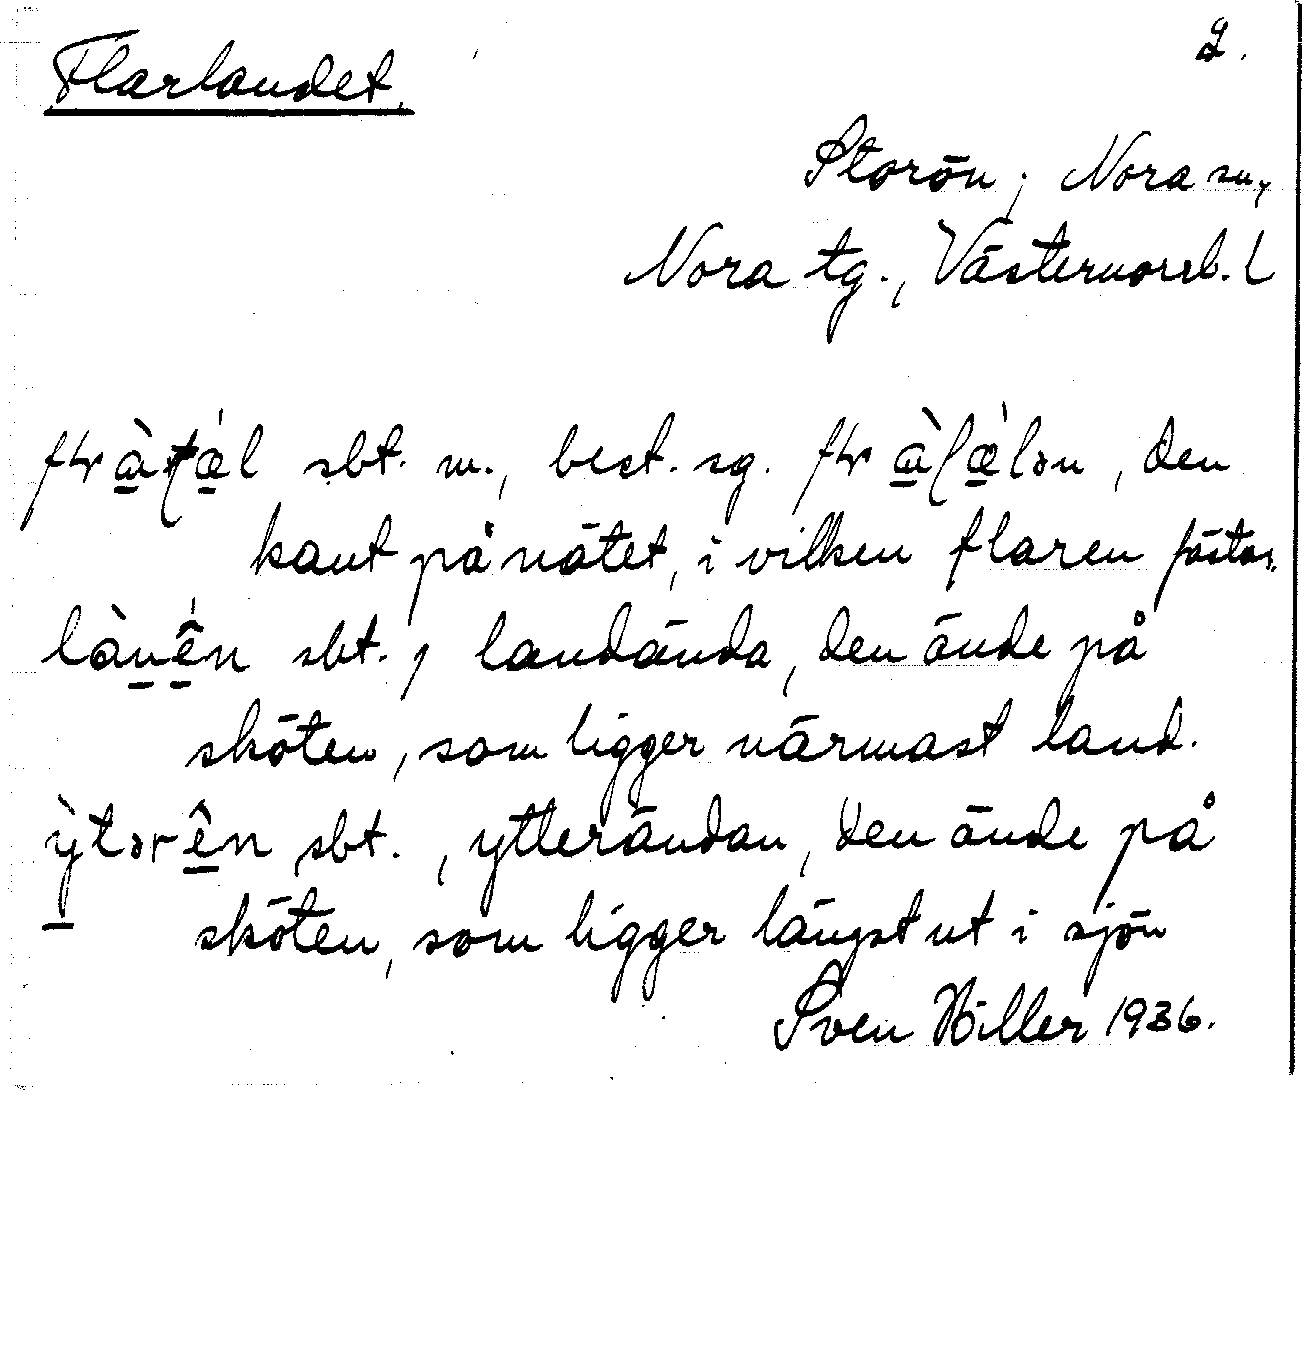 Flarlandet.
2.
Storön; Nora sn,
Nora tg., Västernorrl. l
sbt. m., best. sg. , den
kant på nätet, i vilken flaren fästes.
lànên sbt., landända, den ände på
sköten, som ligger närmast land.
ỳtərên sbt., ytterändan, den ände på
sköten, som ligger längst ut i sjön
Sven Höller 1936.